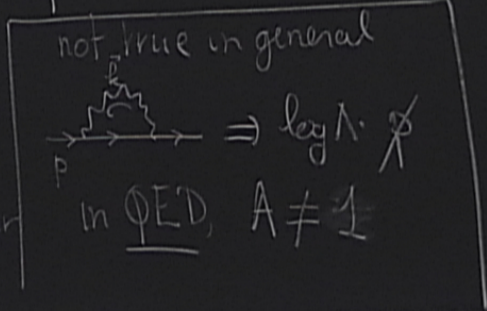 not true in general
k
p ⇒ log Λ · p̸
in QED, A ≠ 1